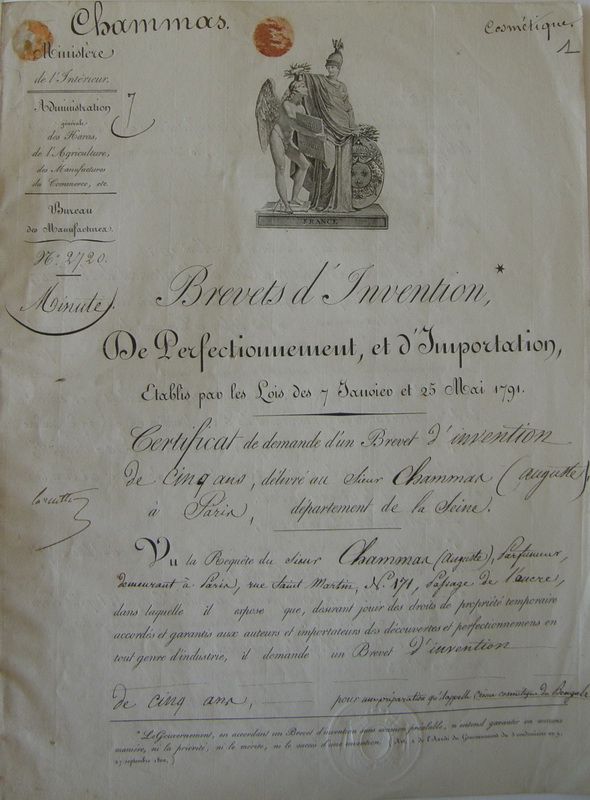 Chammas.
Cosmétique
1
Ministère
de l'Intérieur.
Administration
générale
des Haras,
de l'Agriculture,
des Manufactures
du Commerce, etc.
7
Bureau
des Manufactures
N.º 2720.
Minute.
FRANCE
Brevets d'Invention,*
De Perfectionnement, et d'Importation,
Etablis par les Lois des 7 Janvier et 25 Mai 1791.
Certificat de demande d'un Brevet d'invention
de cinq ans, délivré au Sieur Chammas (auguste)
à Paris, département de la Seine.
Vu la Requête du Sieur Chammas (Auguste), Parfumeur,
demeurant à Paris, rue Saint Martin, N.º 171, Passage de l'ancre,
dans laquelle il expose que, désirant jouir des droits de propriété temporaire
accordés et garantis aux auteurs et importateurs des découvertes et perfectionnemens en
tout genre d'industrie, il demande un Brevet d'invention
de cinq ans, pour une préparation qu'il appelle Crème cosmétique du Bengale
* Le Gouvernement, en accordant un Brevet d'invention sans examen préalable, n'entend garantir en aucune
manière, ni la priorité, ni le mérite, ni le succès d'une invention. (Art. 2 de l'Arrêté du Gouvernement du 5 vendémiaire an 9,
27 septembre 1800)